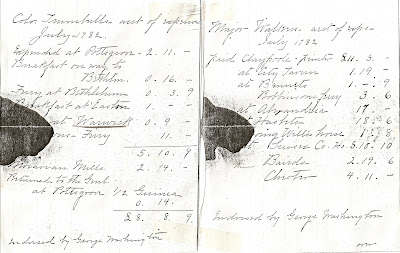 Colo. Trumbulls acct of expenses
July-1782.
Expended at Pottsgrove - 2. 11. -
Breakfast on way to
Bethlm. 0. 16. -
Ferry at Bethlehem 0. 3. 9
Breakfast at Easton 1. - -
at Warwick 0. 9 -
Ferry 11. -
5. 10. 9
Moravian Mills 2. 14. -
Returned to the Genl
at Pottsgrove 1/2 Guinea
0. 14.
£8. 8. 9.
endorsed by George Washington
Major Walkers acct of expe-
July 1782
paid Claypoole - printer £11. 5. -
at City Tavern 1. 19. -
at Bennets 1. - . 9
Robinsons ferry . 3 . 6
at Alexandria 17. -
18. 6
Wills house 1. 8
Co. Ho. 5. 10. 10
Bairds 2. 19. 6
4. 11. -
Endorsed by George Washington
over